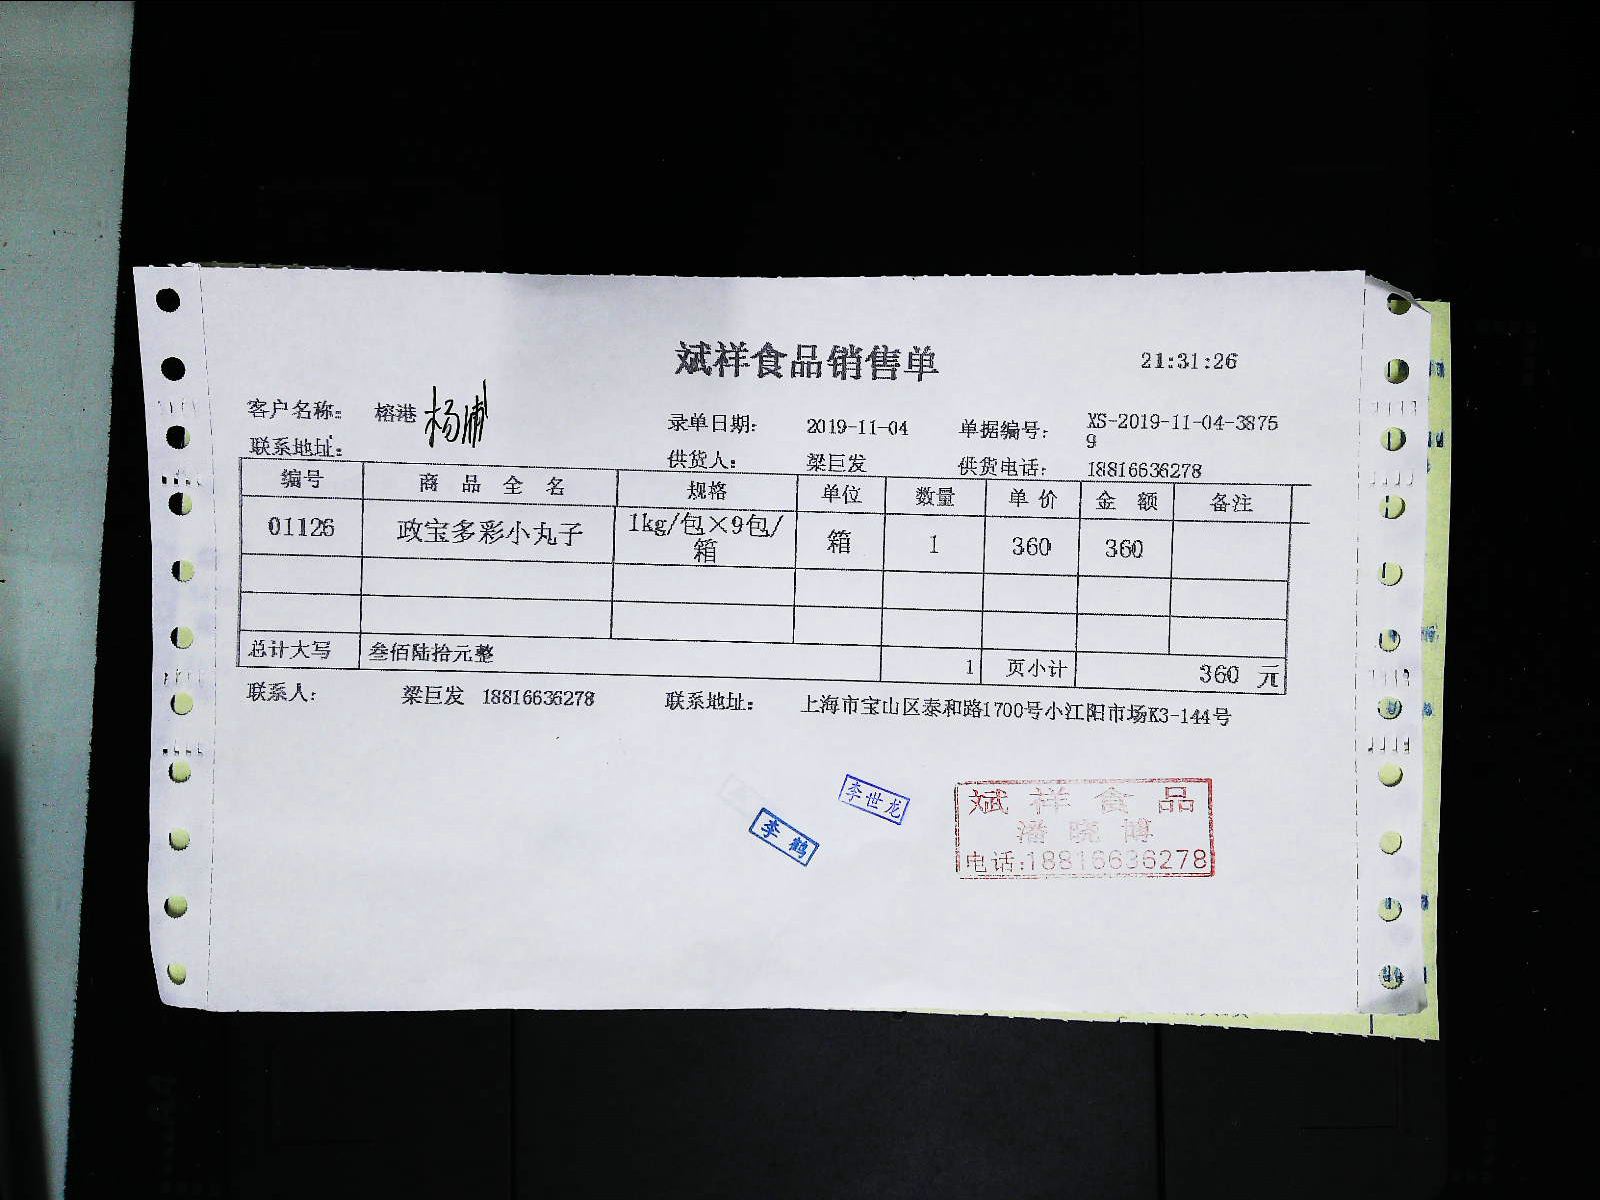 斌祥食品销售单
21:31:26
客户名称: 榕港 杨浦
录单日期: 2019-11-04 单据编号: XS-2019-11-04-3875
9
联系地址:
供货人: 梁巨发 供货电话: 18816636278
编号 商品全名 规格 单位 数量 单价 金额 备注
01126 政宝多彩小丸子 1kg/包×9包/
箱 箱 1 360 360
总计大写 叁佰陆拾元整 1 页小计 360 元
联系人: 梁巨发 18816636278 联系地址: 上海市宝山区泰和路1700号小江阳市场K3-144号
李世龙
李鹤
斌祥食品
潘晓博
电话:18816636278